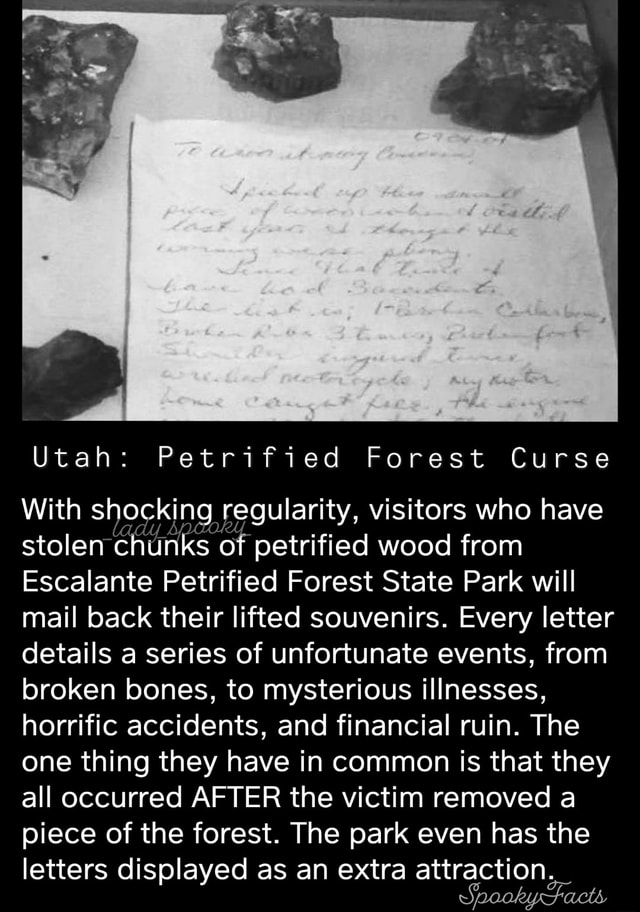 To whom it may Concern,
I picked up this small
piece of wood when I visited
last year. I thought the
warning was phony.
Since that time I
have had 3 accidents.
The list is; 1-Broken Collarbone,
Broken Ribs 3 times, Broken foot
injured twice,
wrecked motorcycle, My Motor
home caught fire, the engine
Utah: Petrified Forest Curse
With shocking regularity, visitors who have
lady_spooky
stolen chunks of petrified wood from
Escalante Petrified Forest State Park will
mail back their lifted souvenirs. Every letter
details a series of unfortunate events, from
broken bones, to mysterious illnesses,
horrific accidents, and financial ruin. The
one thing they have in common is that they
all occurred AFTER the victim removed a
piece of the forest. The park even has the
letters displayed as an extra attraction.
SpookyFacts